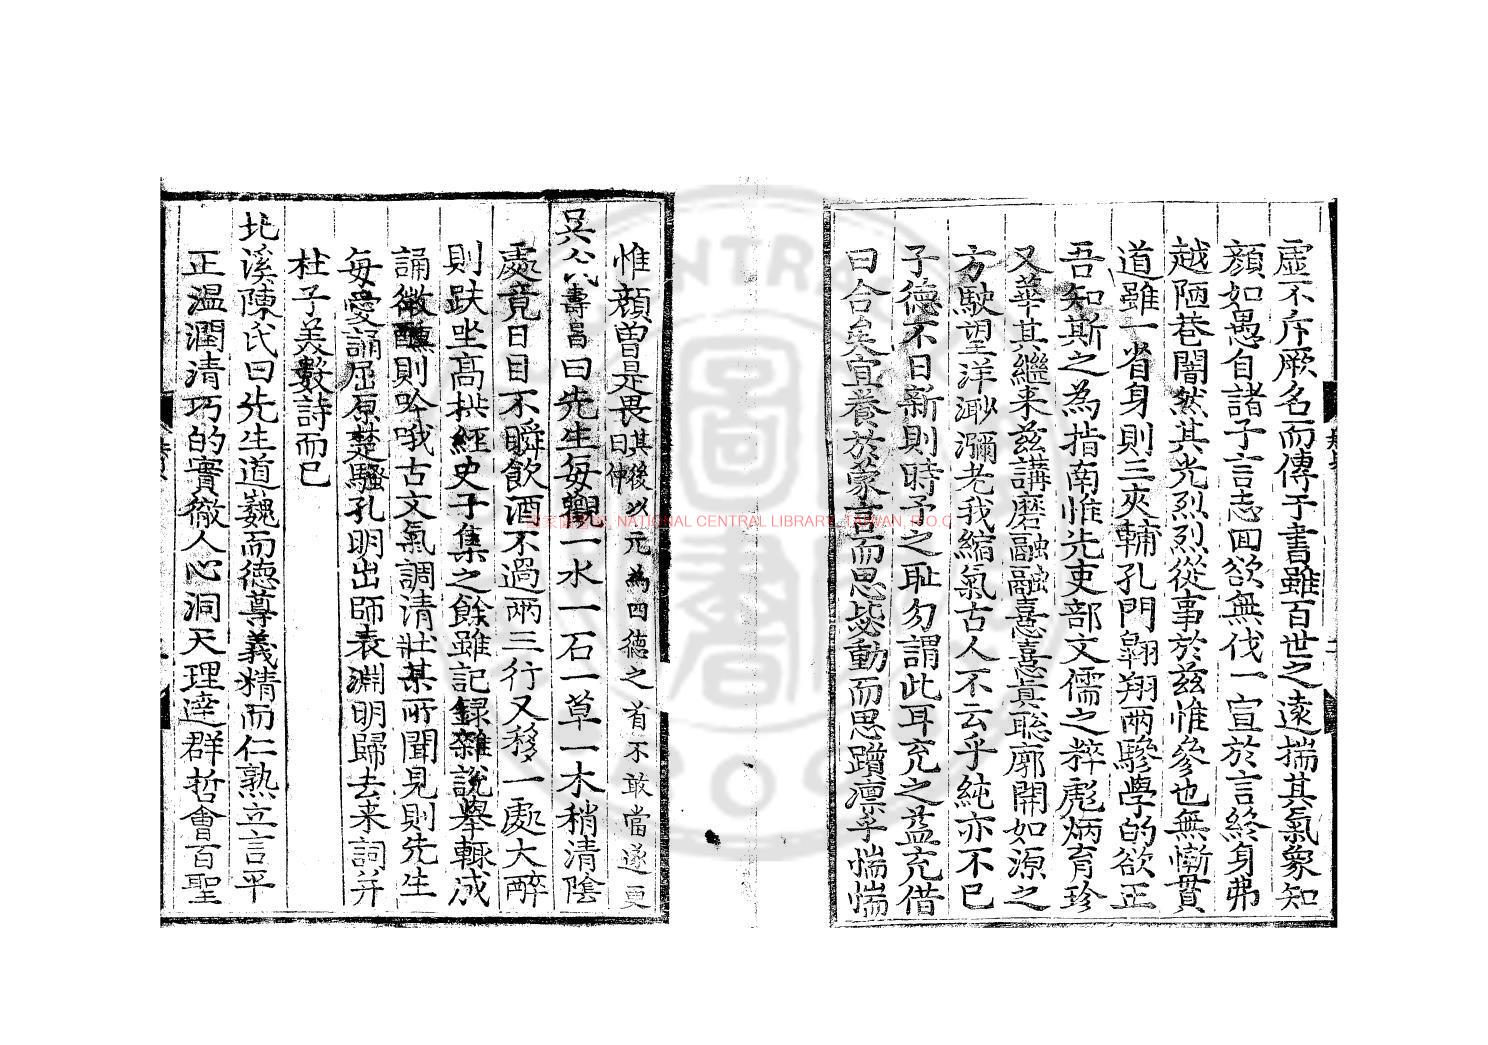 虛不斥厥名而傳于書雖百世之遠揣其氣象知
顏如愚自諸子言志回欲無伐一宣於言終身弗
越陋巷闇然其光烈烈從事於兹惟參也無慚貫
道雖一省身則三夾輔孔門翱翔兩驂學的欲正
吾知斯之為指南惟先吏部文儒之粹彪炳育珍
又華其繼来兹講磨融融憙憙真聡廓開如源之
方駛望洋渺瀰老我縮氣古人不云乎純亦不已
子德不日新則時予之耻勿謂此耳充之益充借
曰合矣宜養於蒙言而思毖動而思躓凛乎惴惴
惟顏曽是畏其後以元為四德之首不敢當遂更曰仲
吳公壽昌曰先生每觀一水一石一草一木稍清陰
處竟日目不瞬飲酒不過兩三行又移一處大醉
則趺坐髙拱經史子集之餘雖記録雜說舉輒成
誦微醺則吟哦古文氣調清壯某所聞見則先生
每愛誦屈原楚騷孔明出師表淵明歸去来詞并
杜子美數詩而已
北溪陳氏曰先生道巍而德尊義精而仁熟立言平
正温潤清巧的實徹人心洞天理逹群哲會百聖
國家圖書館, NATIONAL CENTRAL LIBRARY, TAIWAN, R.O.C.